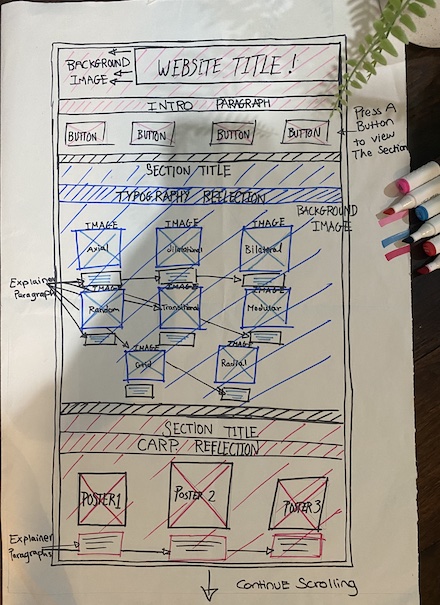 BACKGROUND
IMAGE
WEBSITE TITLE!
INTRO PARAGRAPH
BUTTON
BUTTON
BUTTON
BUTTON
Press A
Button
to view
The Section
SECTION TITLE
TYPOGRAPHY REFLECTION
BACKGROUND
IMAGE
IMAGE
IMAGE
IMAGE
Axial
Dilatational
Bilateral
Explainer
Paragraph
IMAGE
IMAGE
IMAGE
Random
Transitional
Modular
IMAGE
IMAGE
Grid
Radial
SECTION TITLE
CARP REFLECTION
POSTER 1
POSTER 2
POSTER 3
Explainer
Paragraphs
Continue Scrolling